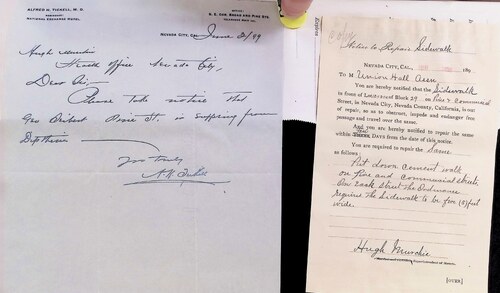 ALFRED H. TICKELL, M. D.
RESIDENCE:
NATIONAL EXCHANGE HOTEL.
OFFICE:
S. E. COR. BROAD AND PINE STS.
NEVADA CITY, CAL., June 2/99
Hugh Murchie
Health Officer Nevada City,
Dear Sir
Please take notice that
Geo St. is suffering from
Diptheria
Yours truly
Notice to Repair Sidewalk
NEVADA CITY, CAL., 189
To M Union Hall Assn
You are hereby notified that the Sidewalk
in front of Lot Block 29 on Pine & Commercial
Street, in Nevada City, Nevada County, California, is out
of repair, so as to obstruct, impede and endanger free
passage and travel over the same.
And you are hereby notified to repair the same
within DAYS from the date of this notice.
You are required to repair the same
as follows:
Put down cement walk
on Pine and commercial streets
On each street the Ordinance
require the sidewalk to be five (5) feet
wide.
Hugh Murchie
[OVER]